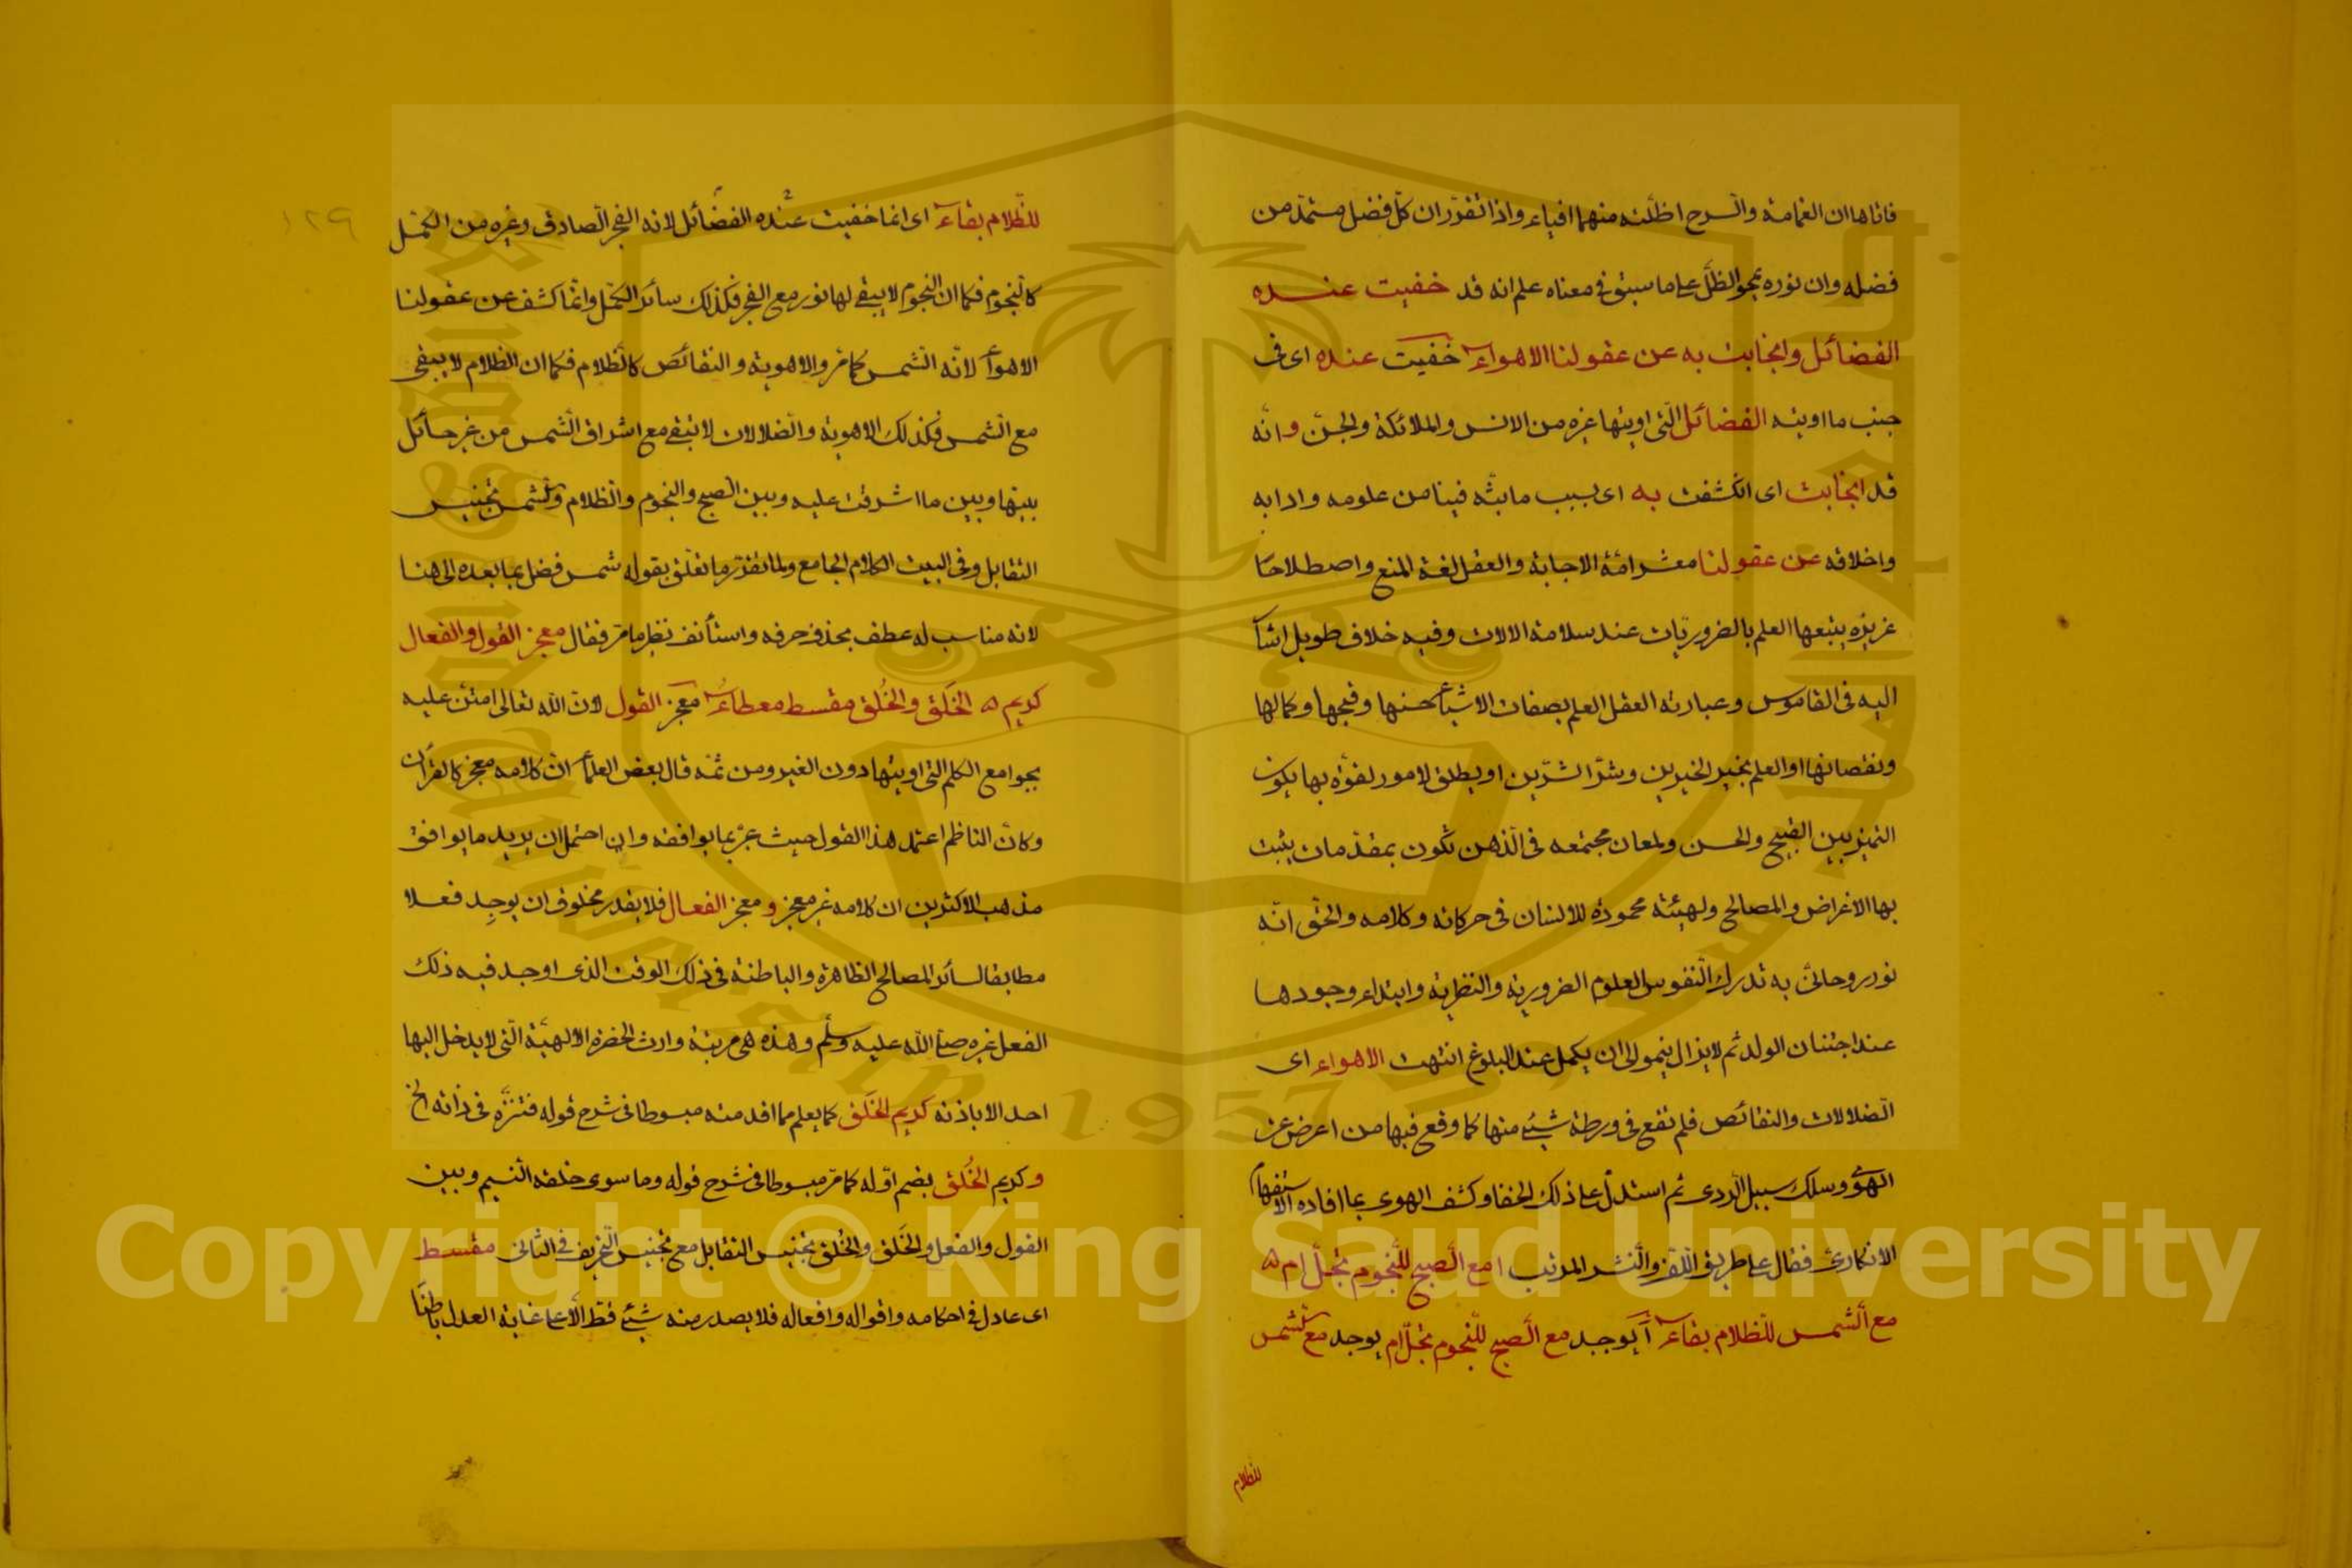 فاتاها ان الغمامة والسرح اظلته منهما افياء واذا تقرر ان كل فضل مستمد من
فضله وان نوره يمحو الظل على ما سبق في معناه علم انه قد خفيت عنده
الفضائل وانجابت به عن عقولنا الاهواء خفيت عنده اى فى
جنب ما اوتيه الفضائل التى اوتيها غيره من الانس والملائكة والجن وانه
قد انجابت اى انكشفت به اى بسبب ما بثه فينا من علومه وادابه
واخلاقه عن عقولنا معشر امة الاجابة والعقل لغة المنع واصطلاحا
غريزه يتبعها العلم بالضروريات عند سلامة الالات وفيه خلاف طويل اشا
اليه فى القاموس وعبارته العقل العلم بصفات الاشياء حسنها وقبحها وكمالها
ونقصانها او العلم بخير الخيرين وشر الشرين او يطلق لامور لقوة بها يكون
التميز بين القبيح والحسن ولمعان مجتمعه فى الذهن تكون بمقدمات يثبت
بها الاغراض والمصالح ولهيئة محمودة للانسان فى حركاته وكلامه والحق انه
نور روحانى به تدرك النفوس العلوم الضرورية والنظرية وابتداء وجودها
عند اجتنان الولد ثم لا يزال ينمو الى ان يكمل عند البلوغ انتهت الاهواء اى
الضلالات والنقائص فلم نقع فى ورطة شيئ منها كما وقع فيها من اعرض عن
الهدى وسلك سبيل الردى ثم استدل على ذلك الخفا وكشف الهوى بما افاده الاستفهام
الانكارى فقال على طريق اللف والنشر المرتب امع الصبح للنجوم تجل ام ه
مع الشمس للظلام بقاء أيوجد مع الصبح للنجوم تجل ام يوجد مع الشمس
للظلام
للظلام بقاء اى انما خفيت عنده الفضائل لانه الفجر الصادق وغيره من الكمل
كالنجوم فكما ان النجوم لا يبقى لها نور مع الفجر فكذلك سائر الكمل وانما كشف عن عقولنا
الاهواء لانه الشمس كما مر والاهوية والنقائص كالظلام فكما ان الظلام لا يبقى
مع الشمس فكذلك الاهوية والضلالات لا تبقى مع اشراق الشمس من غير حائل
بينها وبين ما اشرقت عليه وبين الصبح والنجوم والظلام والشمس تجنيس
التقابل وفى البيت الكلام الجامع ولما تقرر ما تعلق بقوله شمس فضل بما بعده الى هنا
لانه مناسب له عطف بحذف حرفه واستأنف نظير ما مر فقال معجز القول والفعال
كريم ه الخَلق والخُلق مقسط معطاء معجز القول لان الله تعالى امتن عليه
بجوامع الكلم التى اوتيها دون الغير ومن ثمه قال بعض العلماء ان كلامه معجز كالقرآن
وكان الناظم اعتمد هذا القول حيث عبر بما يوافقه وان احتمل ان يريد ما يوافق
مذهب الاكثرين ان كلامه غير معجز و معجز الفعال فلا يقدر مخلوق ان يوجد فعلا
مطابقا لسائر المصالح الظاهرة والباطنة فى ذلك الوقت الذى اوجد فيه ذلك
الفعل غيره صلى الله عليه وسلم وهذه هى مرتبة وارث الحضرة الالهية التى لا يدخل اليها
احد الا باذنه كريم الخَلق كما يعلم مما قدمته مبسوطا فى شرح قوله فتنزه فى ذاته الخ
وكريم الخُلق بضم اوله كما مر مبسوطا فى شرح قوله وما سوى خلقه النسيم وبين
القول والفعل والخَلق والخُلق تجنيس التقابل مع تجنيس التحريف فى الثانى مقسط
اى عادل فى احكامه واقواله وافعاله فلا يصدر منه شيئ قط الا على غاية العدل باطنا
١٢٩
Copyright © King Saud University
King Saud University
1957